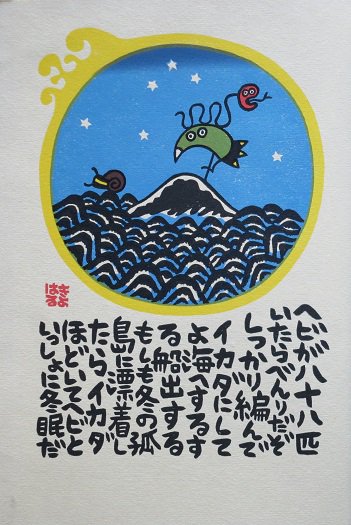 ヘビが八十八匹
いたらべんりだぞ
しっかり編んで
イカダにして
よ海へするす
る船出する
もしも冬の孤
島に漂着し
たらイカダ
ほどいてヘビと
いっしょに冬眠だ
きよ
はる